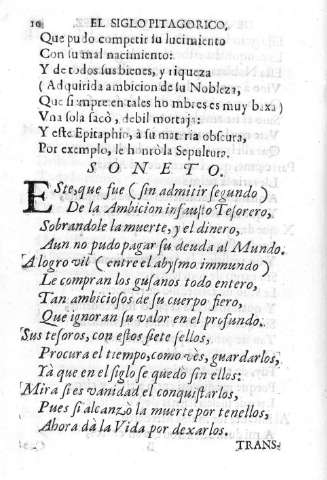 10 EL SIGLO PITAGORICO,
Que pudo competir su lucimiento
Con su mal nacimiento:
Y de todos sus bienes, y riqueza
( Adquirida ambicion de su Nobleza,
Que siempre en tales hombres es muy baxa )
Vna sola sacò, debil mortaja:
Y este Epitaphio, à su materia obscura,
Por exemplo, le honrò la Sepultura.
SONETO.
ESte, que fue ( sin admitir segundo )
De la Ambicion infausto Tesorero,
Sobrandole la muerte, y el dinero,
Aun no pudo pagar su deuda al Mundo.
A logro vil ( entre el abysmo inmundo )
Le compran los gusanos todo entero,
Tan ambiciosos de su cuerpo fiero,
Que ignoran su valor en el profundo.
Sus tesoros, con estos siete sellos,
Procura el tiempo, como vès, guardarlos,
Yà que en el siglo se quedò sin ellos:
Mira si es vanidad el conquistarlos,
Pues si alcanzò la muerte por tenellos,
Ahora dà la Vida por dexarlos.
TRANS-